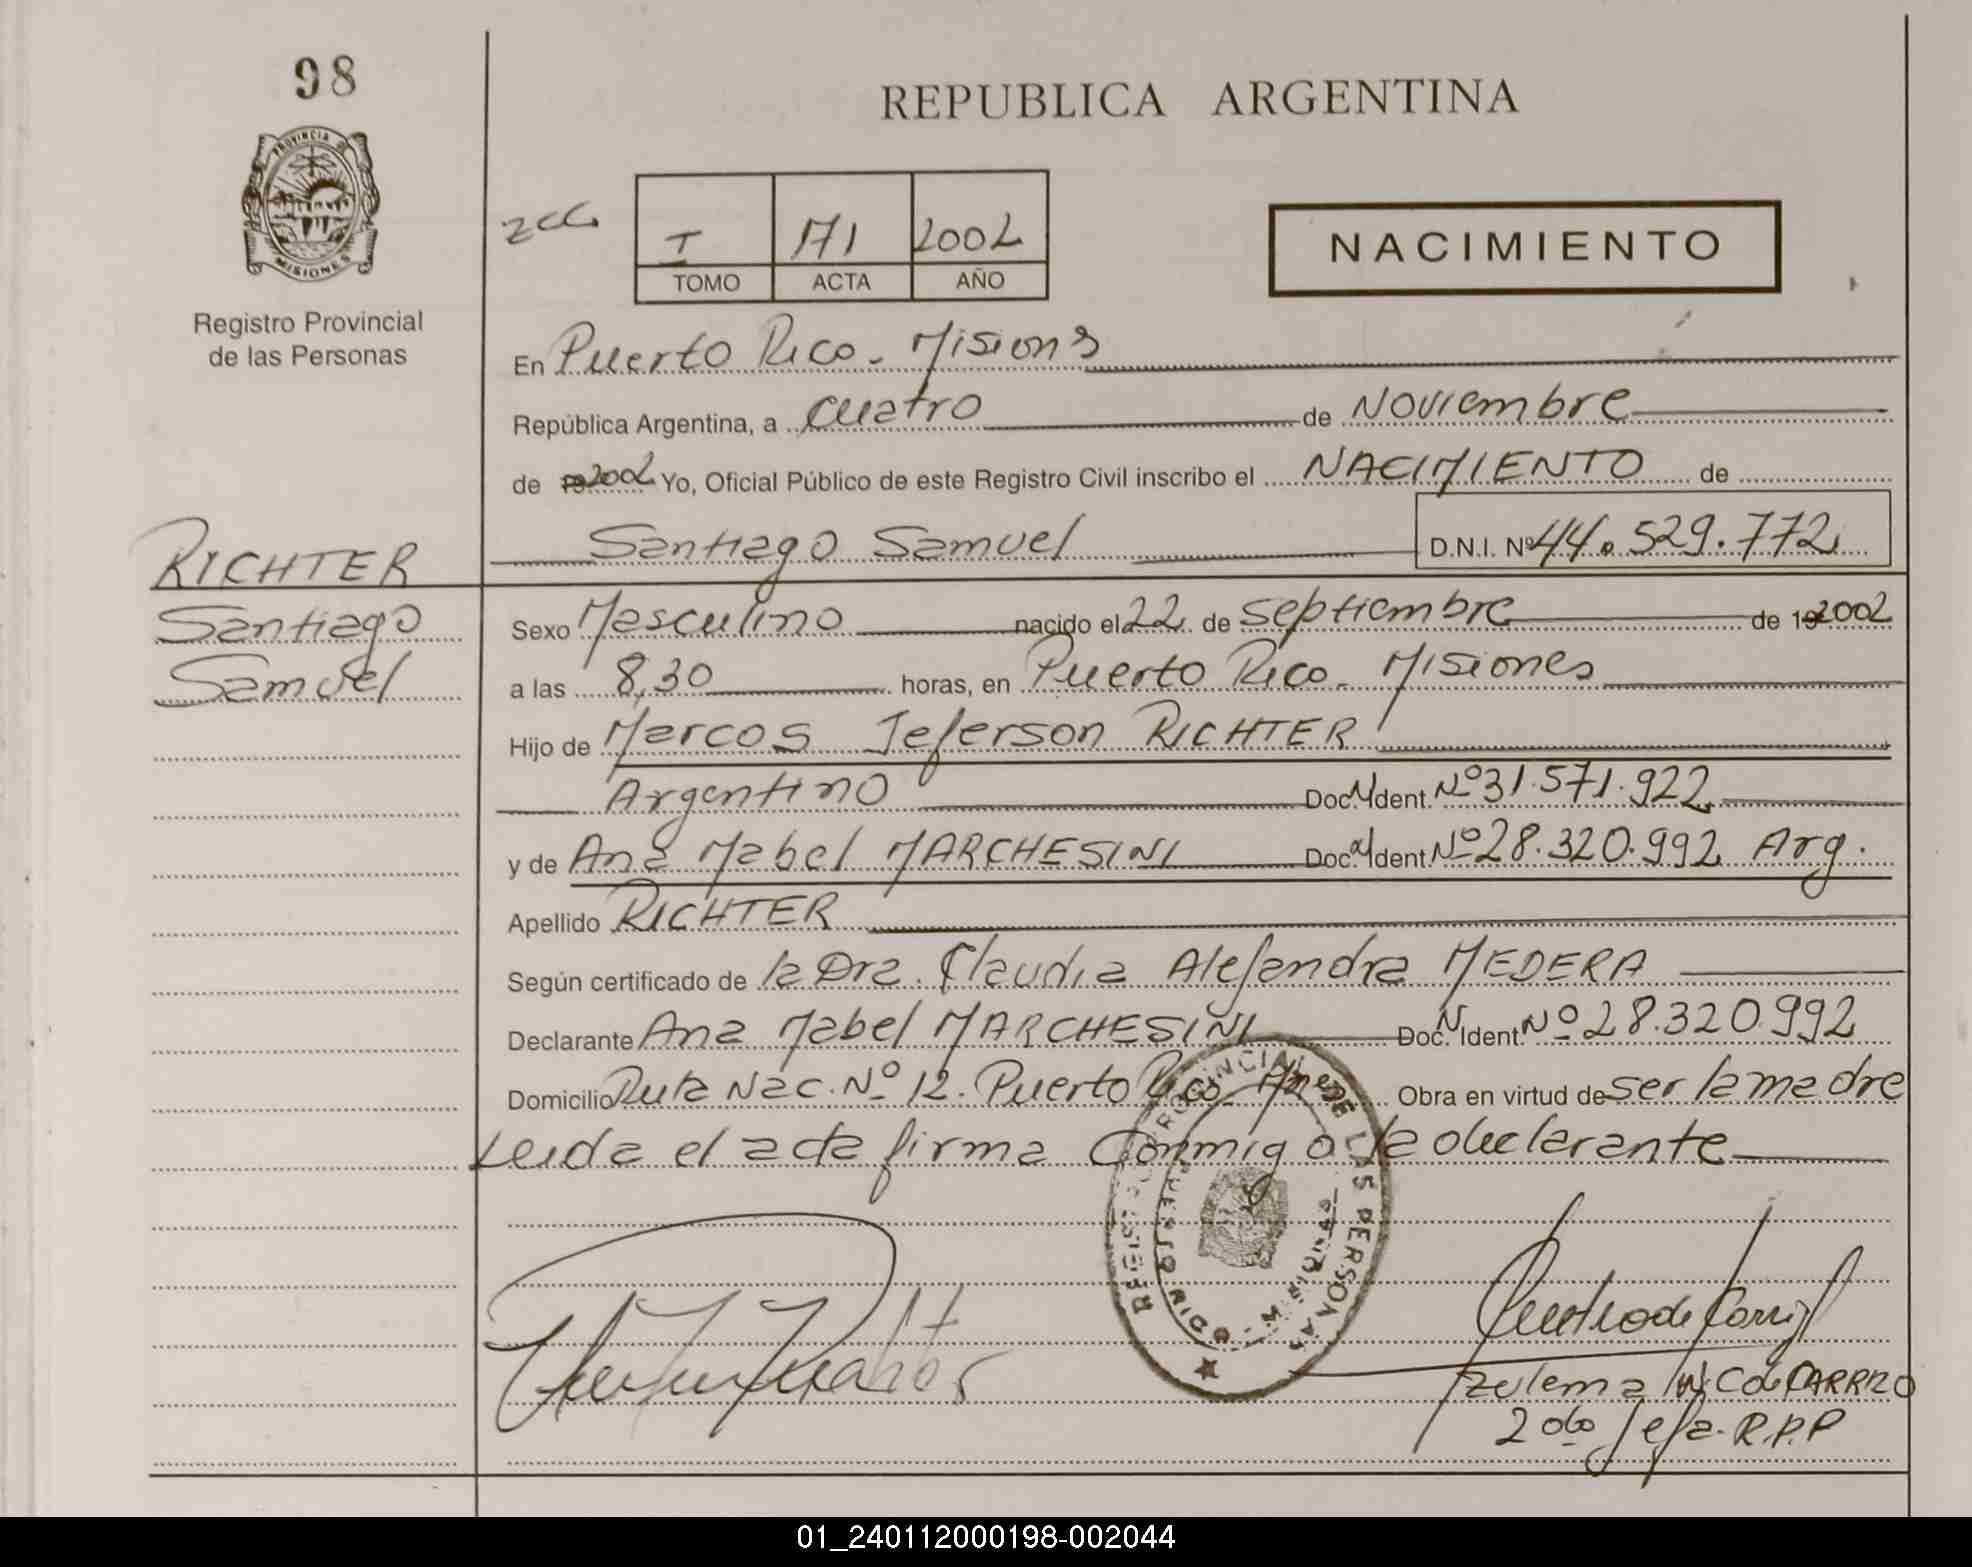 98
REPUBLICA ARGENTINA
PROVINCIA DE
MISIONES
Registro Provincial
de las Personas
I 171 2002
TOMO ACTA AÑO
NACIMIENTO
En Puerto Rico - Misiones
República Argentina, a cuatro de Noviembre
de 2002 Yo, Oficial Público de este Registro Civil inscribo el NACIMIENTO de
Santiago Samuel D.N.I. Nº 44.529.772
RICHTER
Santiago
Samuel
Sexo Masculino nacido el 22 de Septiembre de 192002
a las 8,30 horas, en Puerto Rico - Misiones
Hijo de Marcos Jeferson RICHTER
Argentino Doc. N Ident. Nº 31.571.922
y de Ana Mabel MARCHESINI Doc. N Ident. Nº 28.320.992 Arg.
Apellido RICHTER
Según certificado de la Dra. Claudia Alejandra MEDERA
Declarante Ana Mabel MARCHESINI Doc. N Ident. Nº 28.320.992
Domicilio Ruta Nac. Nº 12. Puerto Rico - Mnes Obra en virtud de ser la madre
Leida el acta firma Conmigo la declarante
REGISTRO PROVINCIAL DE LAS PERSONAS
MISIONES
Zulema C de CARRIZO
2da Jefa - R.P.P
01_240112000198-002044